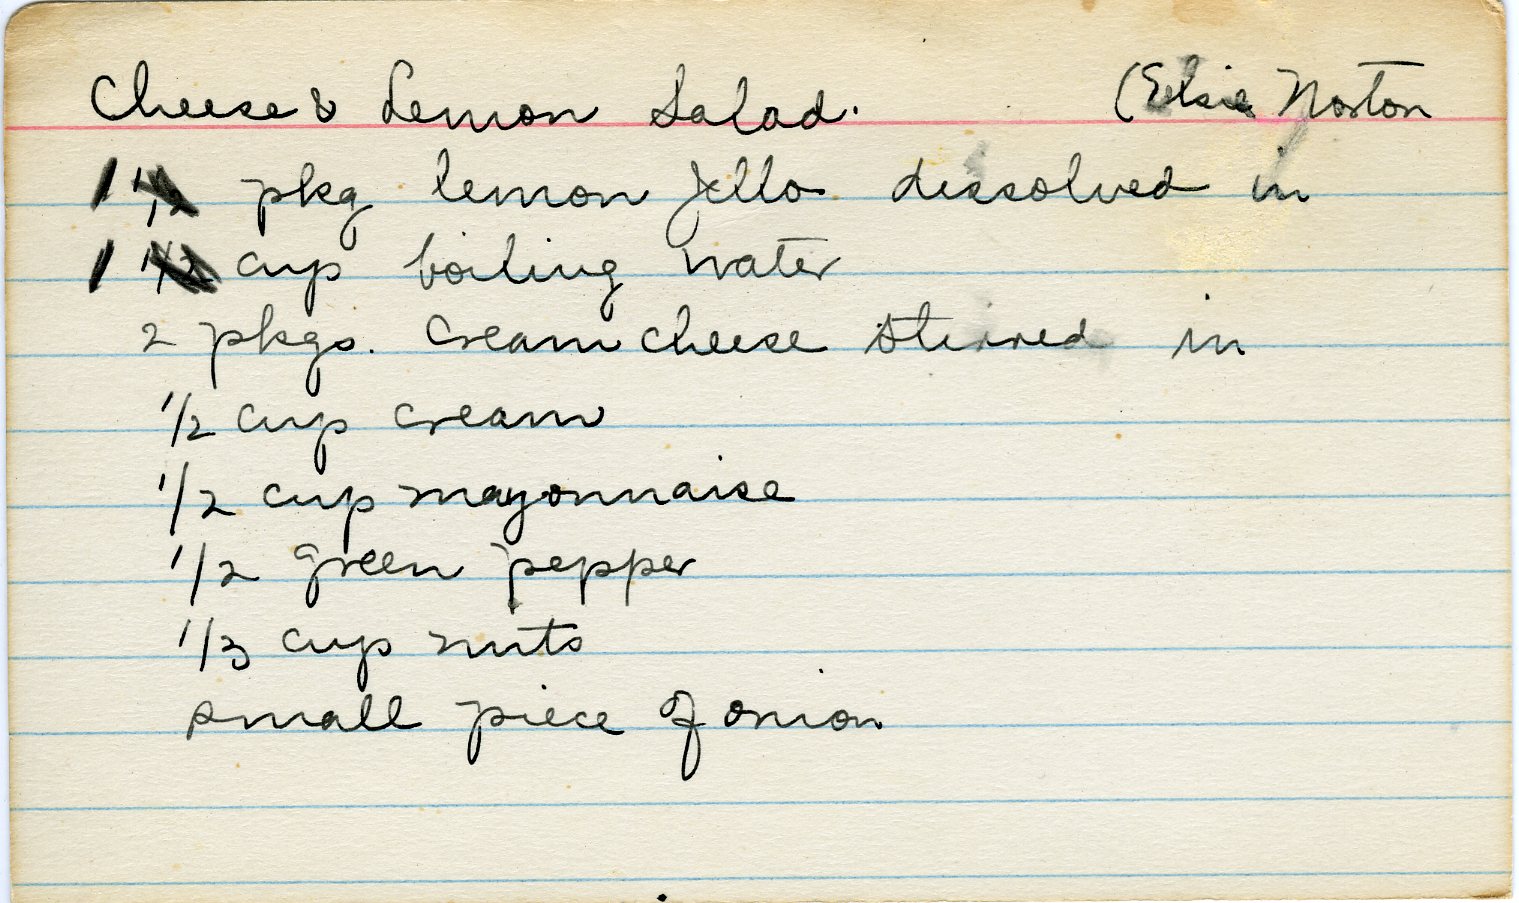 Cheese & Lemon Salad. (Elsie Norton
1 1/2 pkg lemon Jello dissolved in
1 1/2 cup boiling water
2 pkgs. cream cheese stirred in
1/2 cup cream
1/2 cup mayonnaise
1/2 green pepper
1/3 cup nuts
small piece of onion